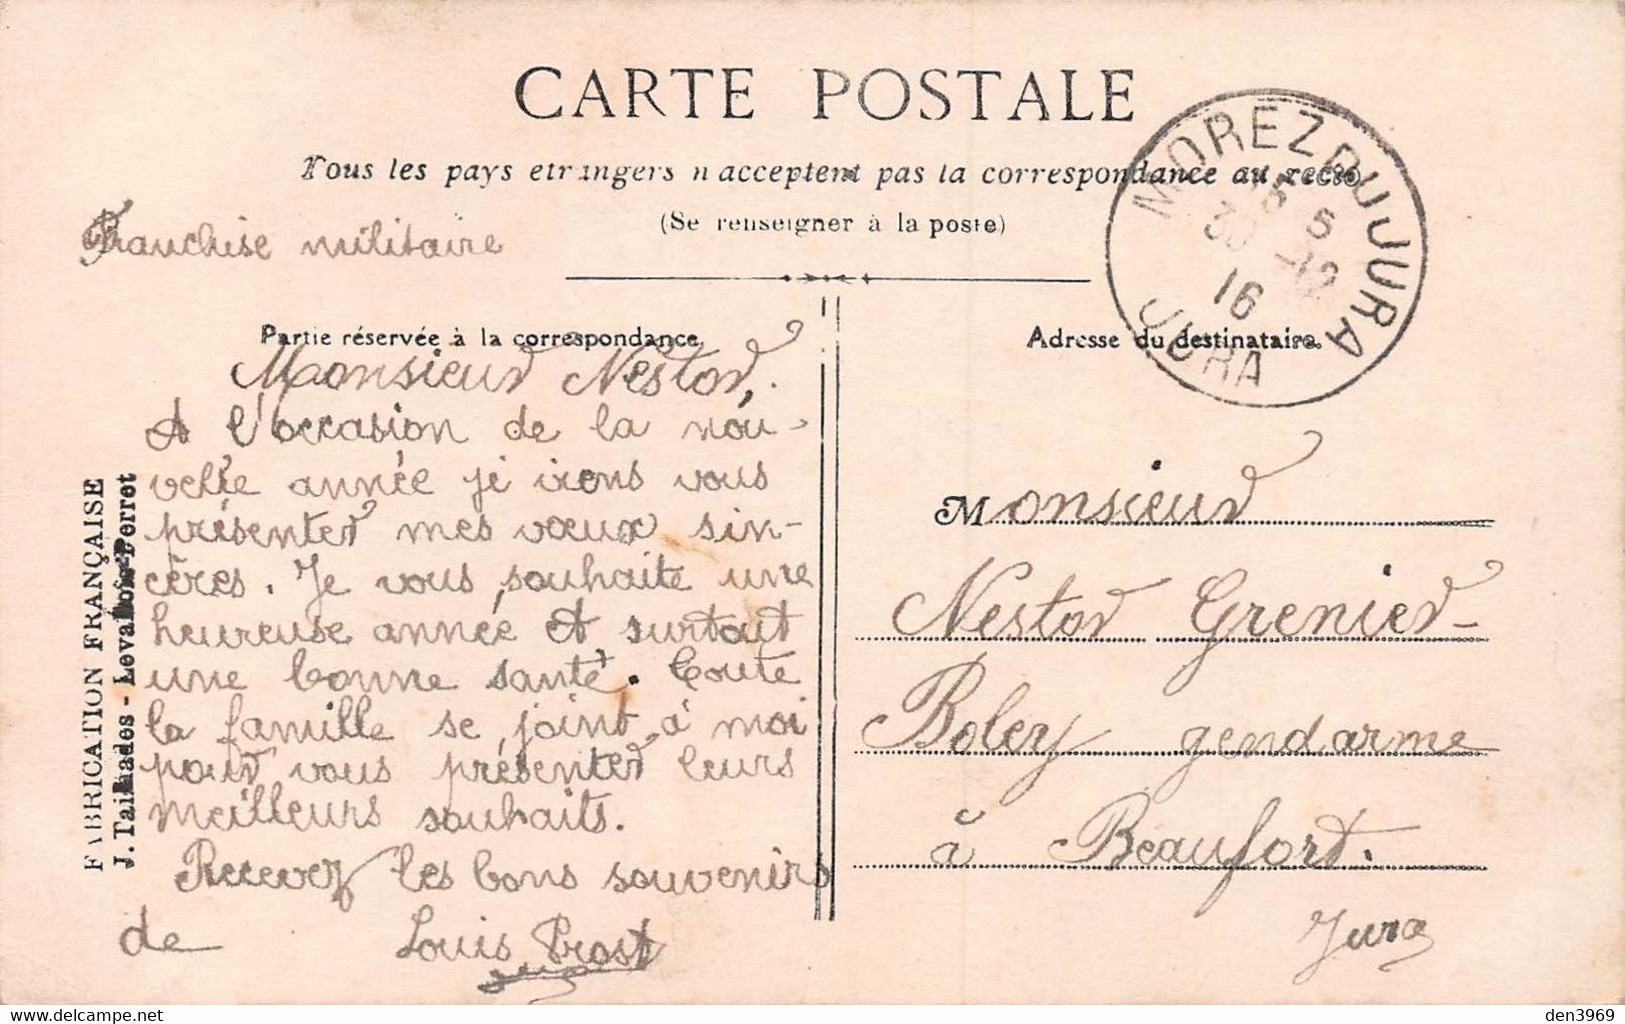 CARTE POSTALE
Tous les pays etrangers n'acceptent pas la correspondance au recto
(Se renseigner à la poste)
Franchise militaire
MOREZ DU JURA
5 5
30 -12
16
JURA
Partie réservée à la correspondance
Adresse du destinataire
Monsieur Nestor,
A l'occasion de la nou-
velle année je irons vous
présenter mes vœux sin-
cères. Je vous souhaite une
heureuse année et surtout
une bonne santé. Toute
la famille se joint à moi
pour vous présenter leurs
meilleurs souhaits.
Recevez les bons souvenirs
de Louis Prost
Monsieur
Nestor Grenier-
Boley gendarme
à Beaufort.
Jura
FABRICATION FRANÇAISE
J. Tailhades - Levallois-Perret
den3969